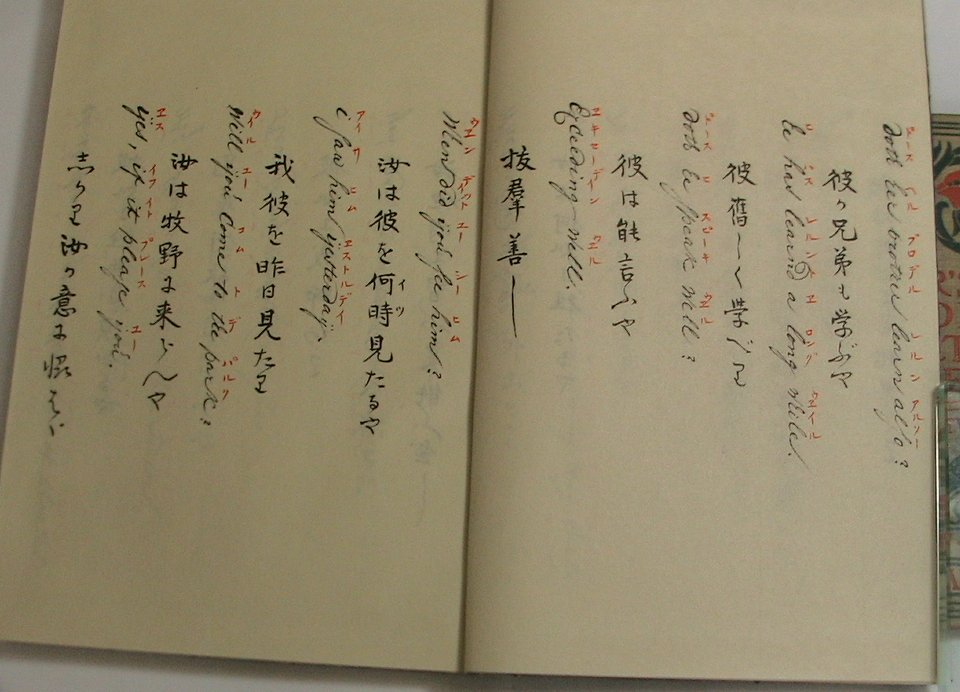 ドース ヘル ブロデル レルン アルソー
doth her brother learn also?
彼カ兄弟も学ぶや
ヒ ハス レルント エ ロング ウエイル
he has learnd a long while.
彼舊しく学びたり
ドース ヒ スピーキ ウエル
doth he speak well?
彼は能言ふや
エキセーデイン ウエル
Exceeding well.
抜羣善し
ウエン デイット ユー シー ヒム
When did you see him?
汝は彼を何時見たるや
イツ
アイ サウ ヒム エストルデイ
i saw him yesterday.
我彼を昨日見たり
ウイル ユー コム ト デ パルク
Will you Come to the park?
汝は牧野に来らんや
エス イフ イト プレース ユー
yes, if it please you.
志かり汝の意に